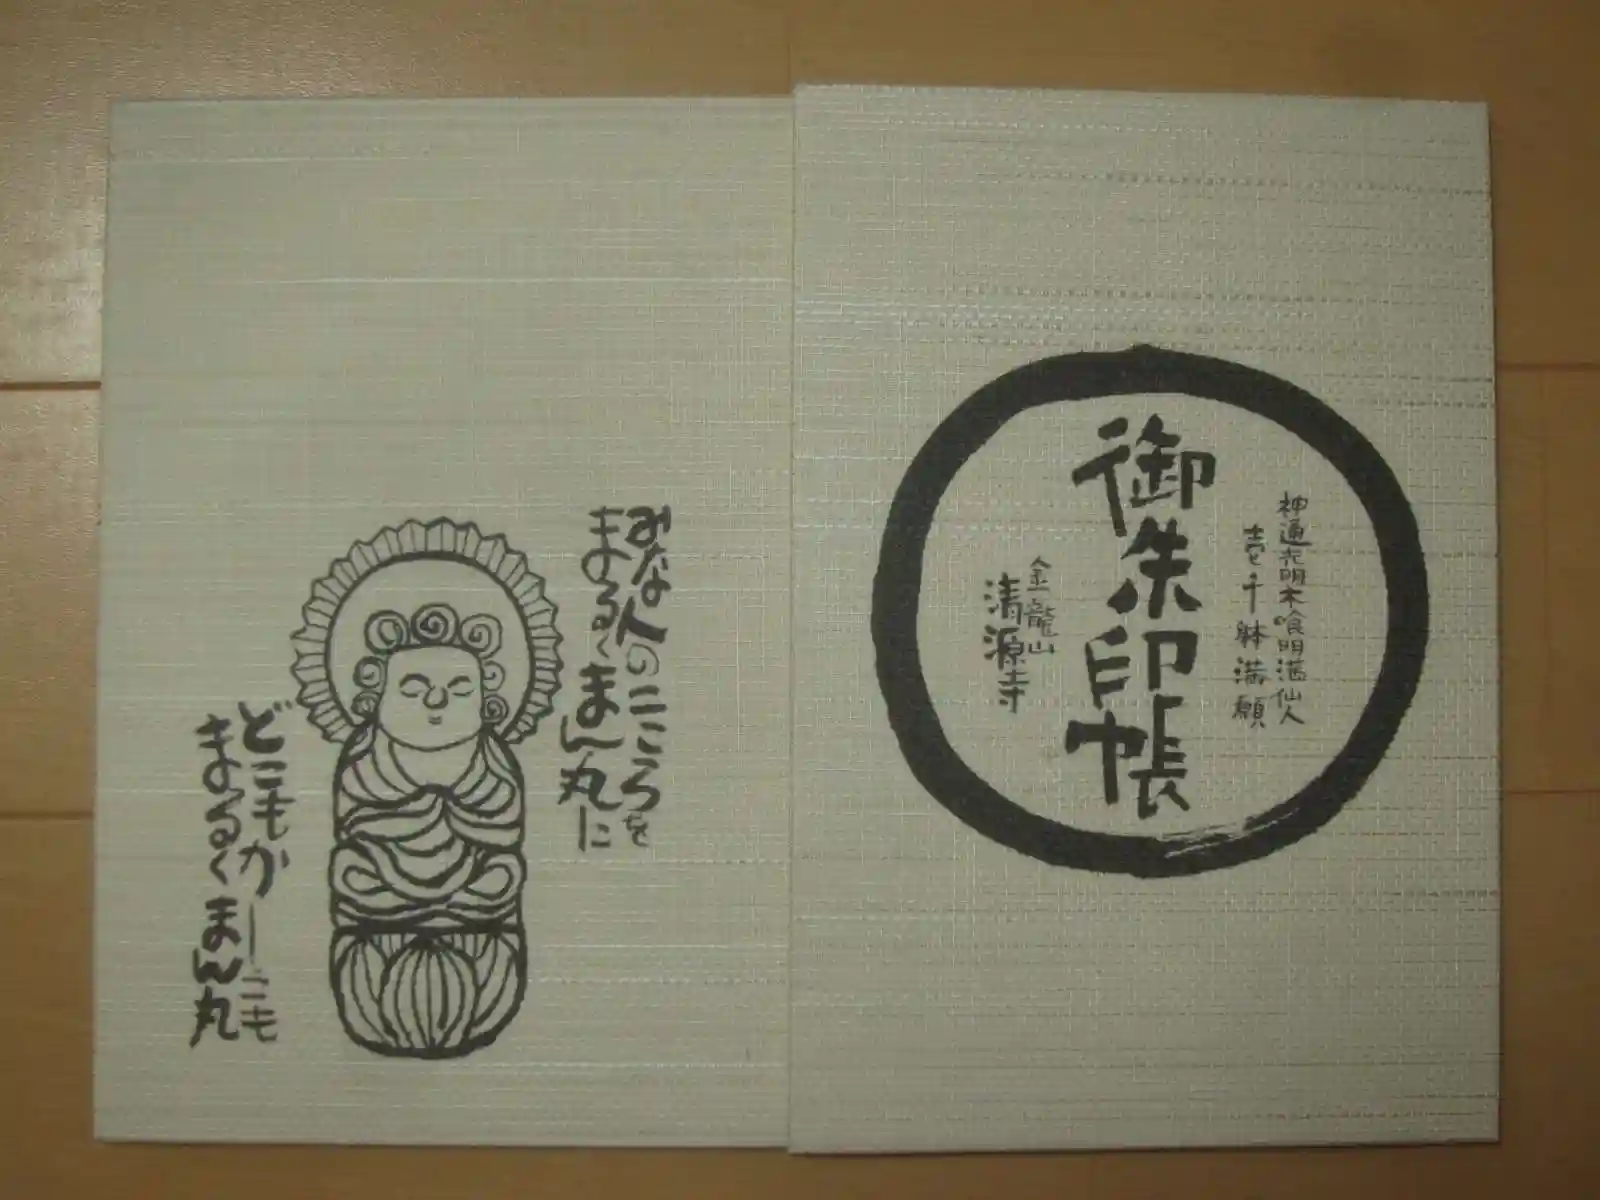 神通光明木喰明満仙人
壱千躰満願
御朱印帳
金龍山
清源寺
みな人のこころを
まるくまん丸に
どこもかしこも
まるくまん丸